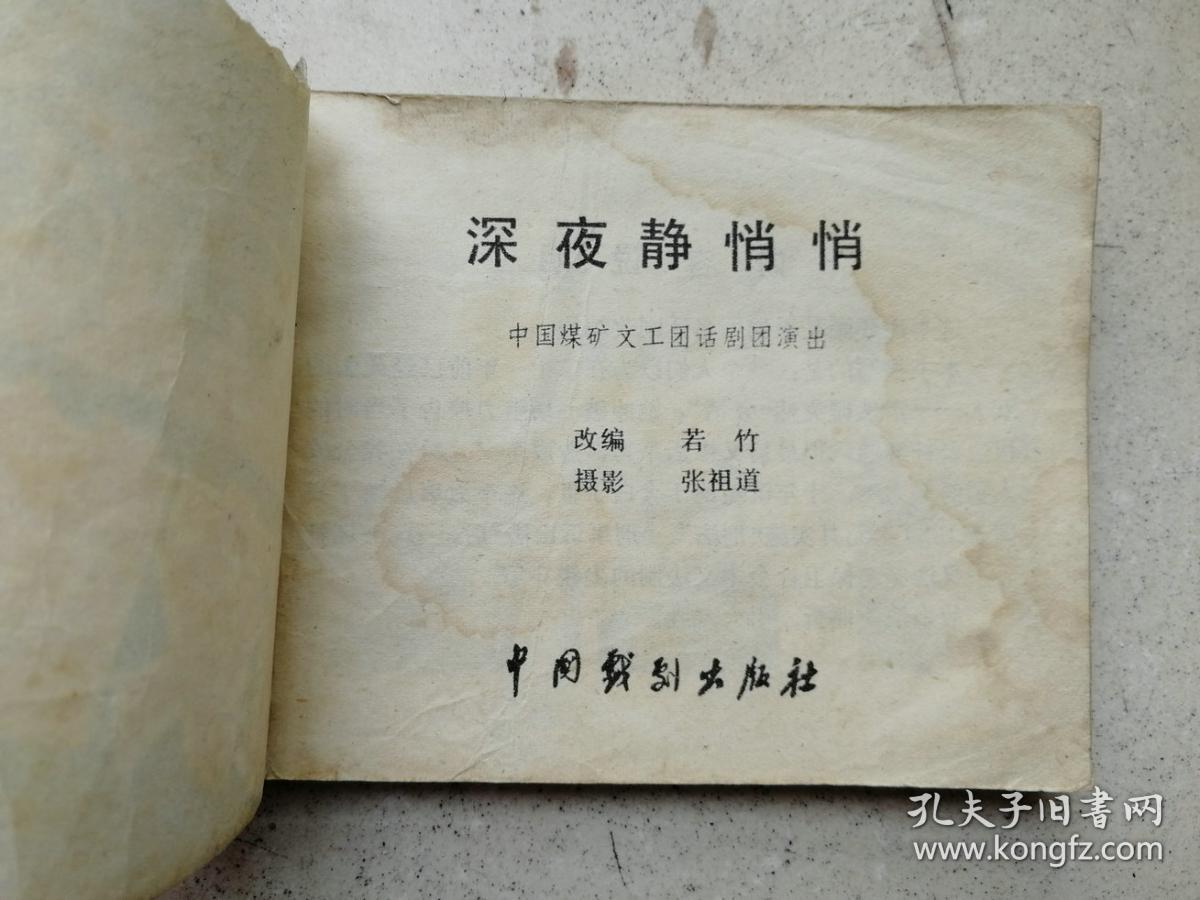 深夜静悄悄
中国煤矿文工团话剧团演出
改编 若竹
摄影 张祖道
中国戏剧出版社
孔夫子旧书网
www.kongfz.com